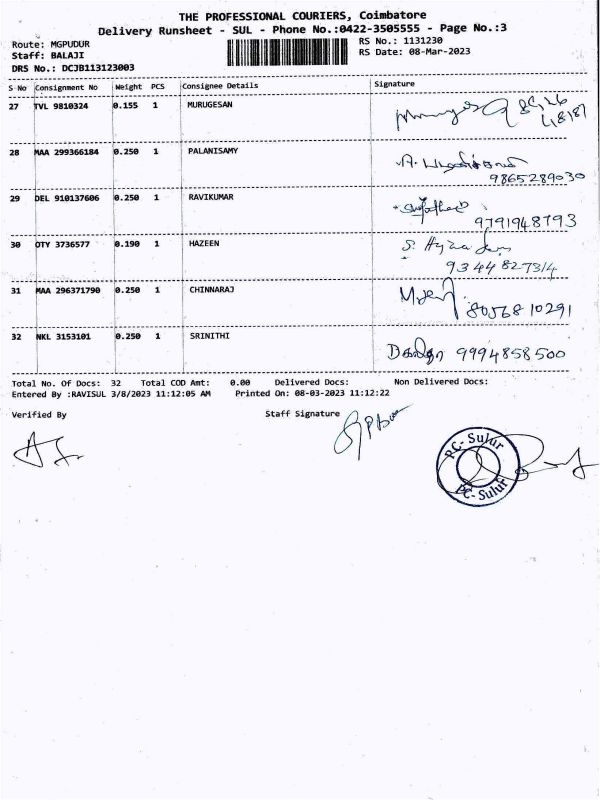 THE PROFESSIONAL COURIERS, Coimbatore
Delivery Runsheet - SUL - Phone No.:0422-3505555 - Page No.:3
Route: MGPUDUR
RS No.: 1131230
Staff: BALAJI
RS Date: 08-Mar-2023
DRS No.: DCJB113123003
S No Consignment No Weight PCS Consignee Details Signature
27 TVL 9810324 0.155 1 MURUGESAN
28 MAA 299366184 0.250 1 PALANISAMY
9865289030
29 DEL 910137606 0.250 1 RAVIKUMAR
9791948793
30 OTY 3736577 0.190 1 HAZEEN
9344827314
31 MAA 296371790 0.250 1 CHINNARAJ
8056810291
32 NKL 3153101 0.250 1 SRINITHI
9994858500
Total No. Of Docs: 32 Total COD Amt: 0.00 Delivered Docs: Non Delivered Docs:
Entered By :RAVISUL 3/8/2023 11:12:05 AM Printed On: 08-03-2023 11:12:22
Verified By Staff Signature
PC- Sulur
PC- Sulur